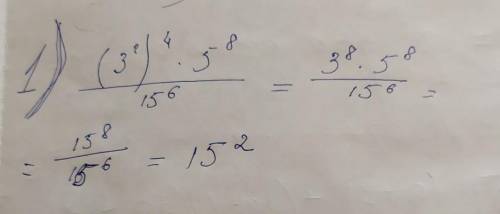 1) (3²)⁴ · 5⁸ / 15⁶ = 3⁸ · 5⁸ / 15⁶ =
= 15⁸ / 15⁶ = 15²